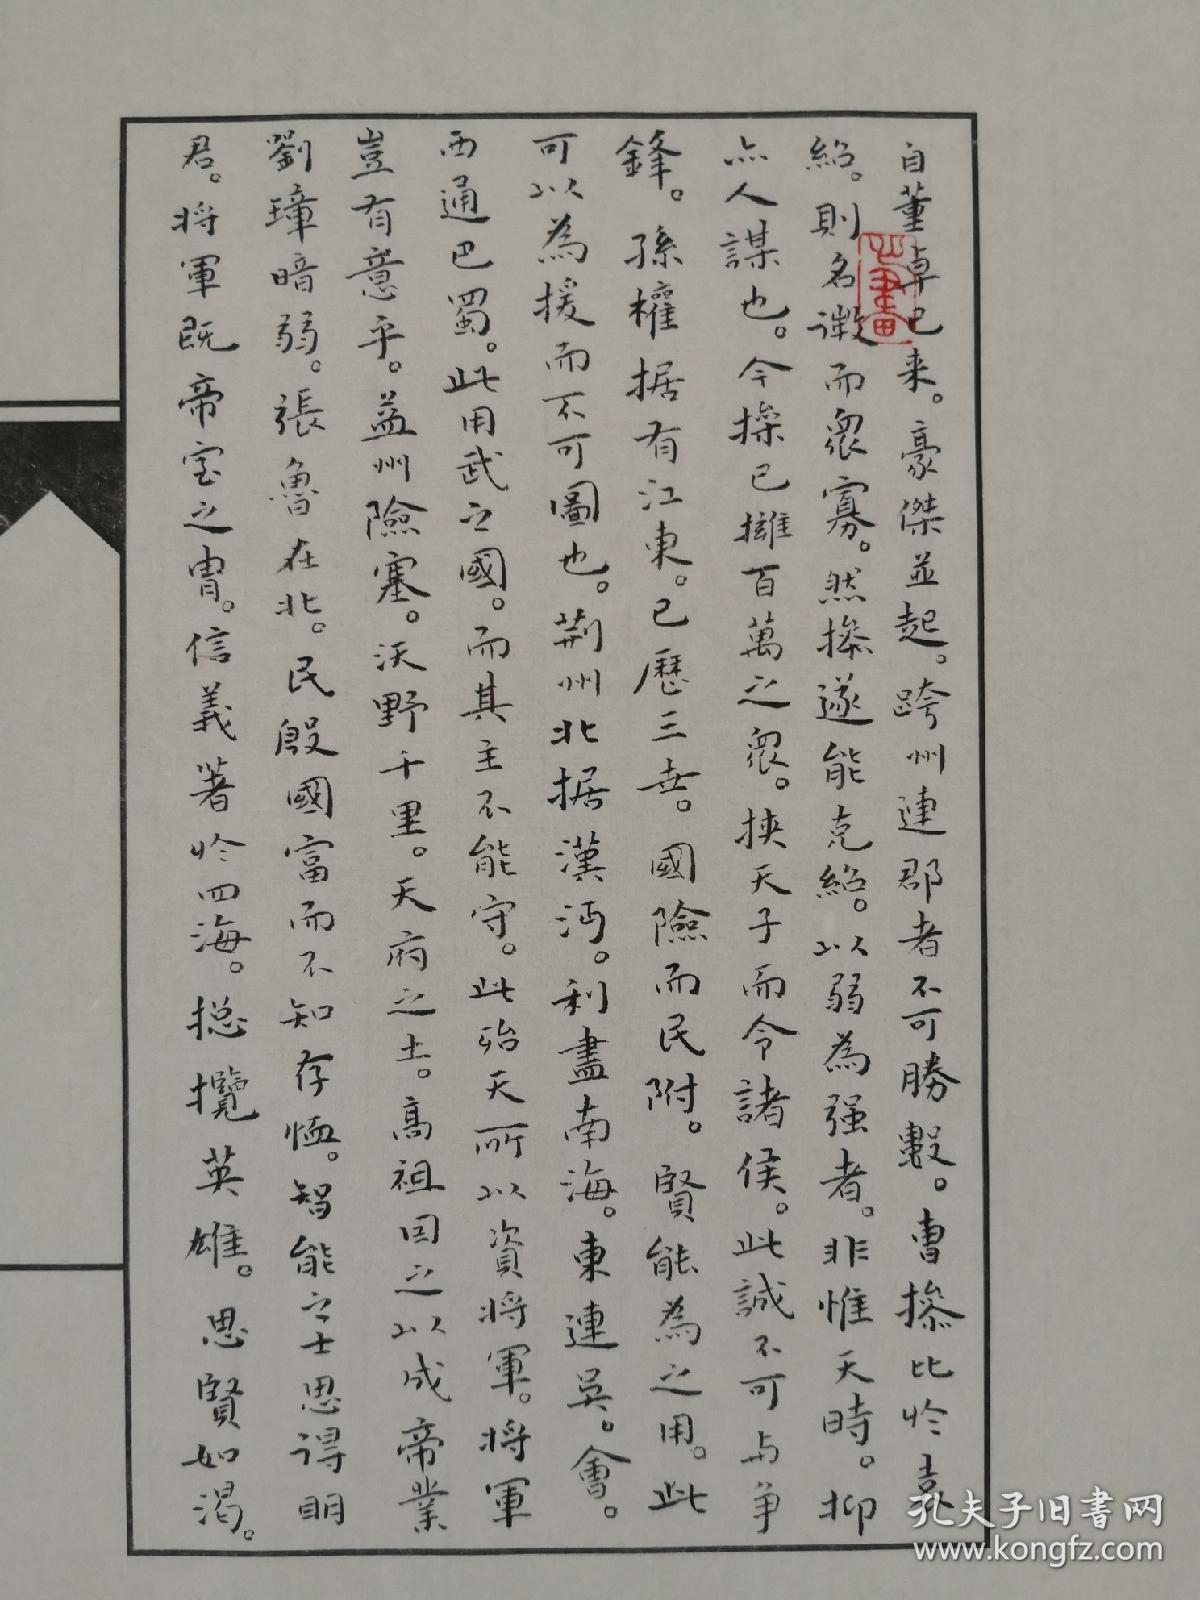 自董卓已来。豪傑並起。跨州連郡者不可勝數。曹操比於袁
紹。則名微而眾寡。然操遂能克紹。以弱為强者。非惟天時。抑
亦人謀也。今操已擁百萬之眾。挾天子而令諸侯。此誠不可与争
鋒。孫權据有江東。已歷三世。國險而民附。賢能為之用。此
可以為援而不可圖也。荆州北据漢沔。利盡南海。東連吴。會。
西通巴蜀。此用武之國。而其主不能守。此殆天所以資將軍。將軍
豈有意乎。益州險塞。沃野千里。天府之土。高祖因之以成帝業
劉璋暗弱。張魯在北。民殷國富而不知存恤。智能之士思得明
君。將軍既帝室之胄。信義著於四海。揔攬英雄。思賢如渴。
孔夫子旧书网
www.kongfz.com